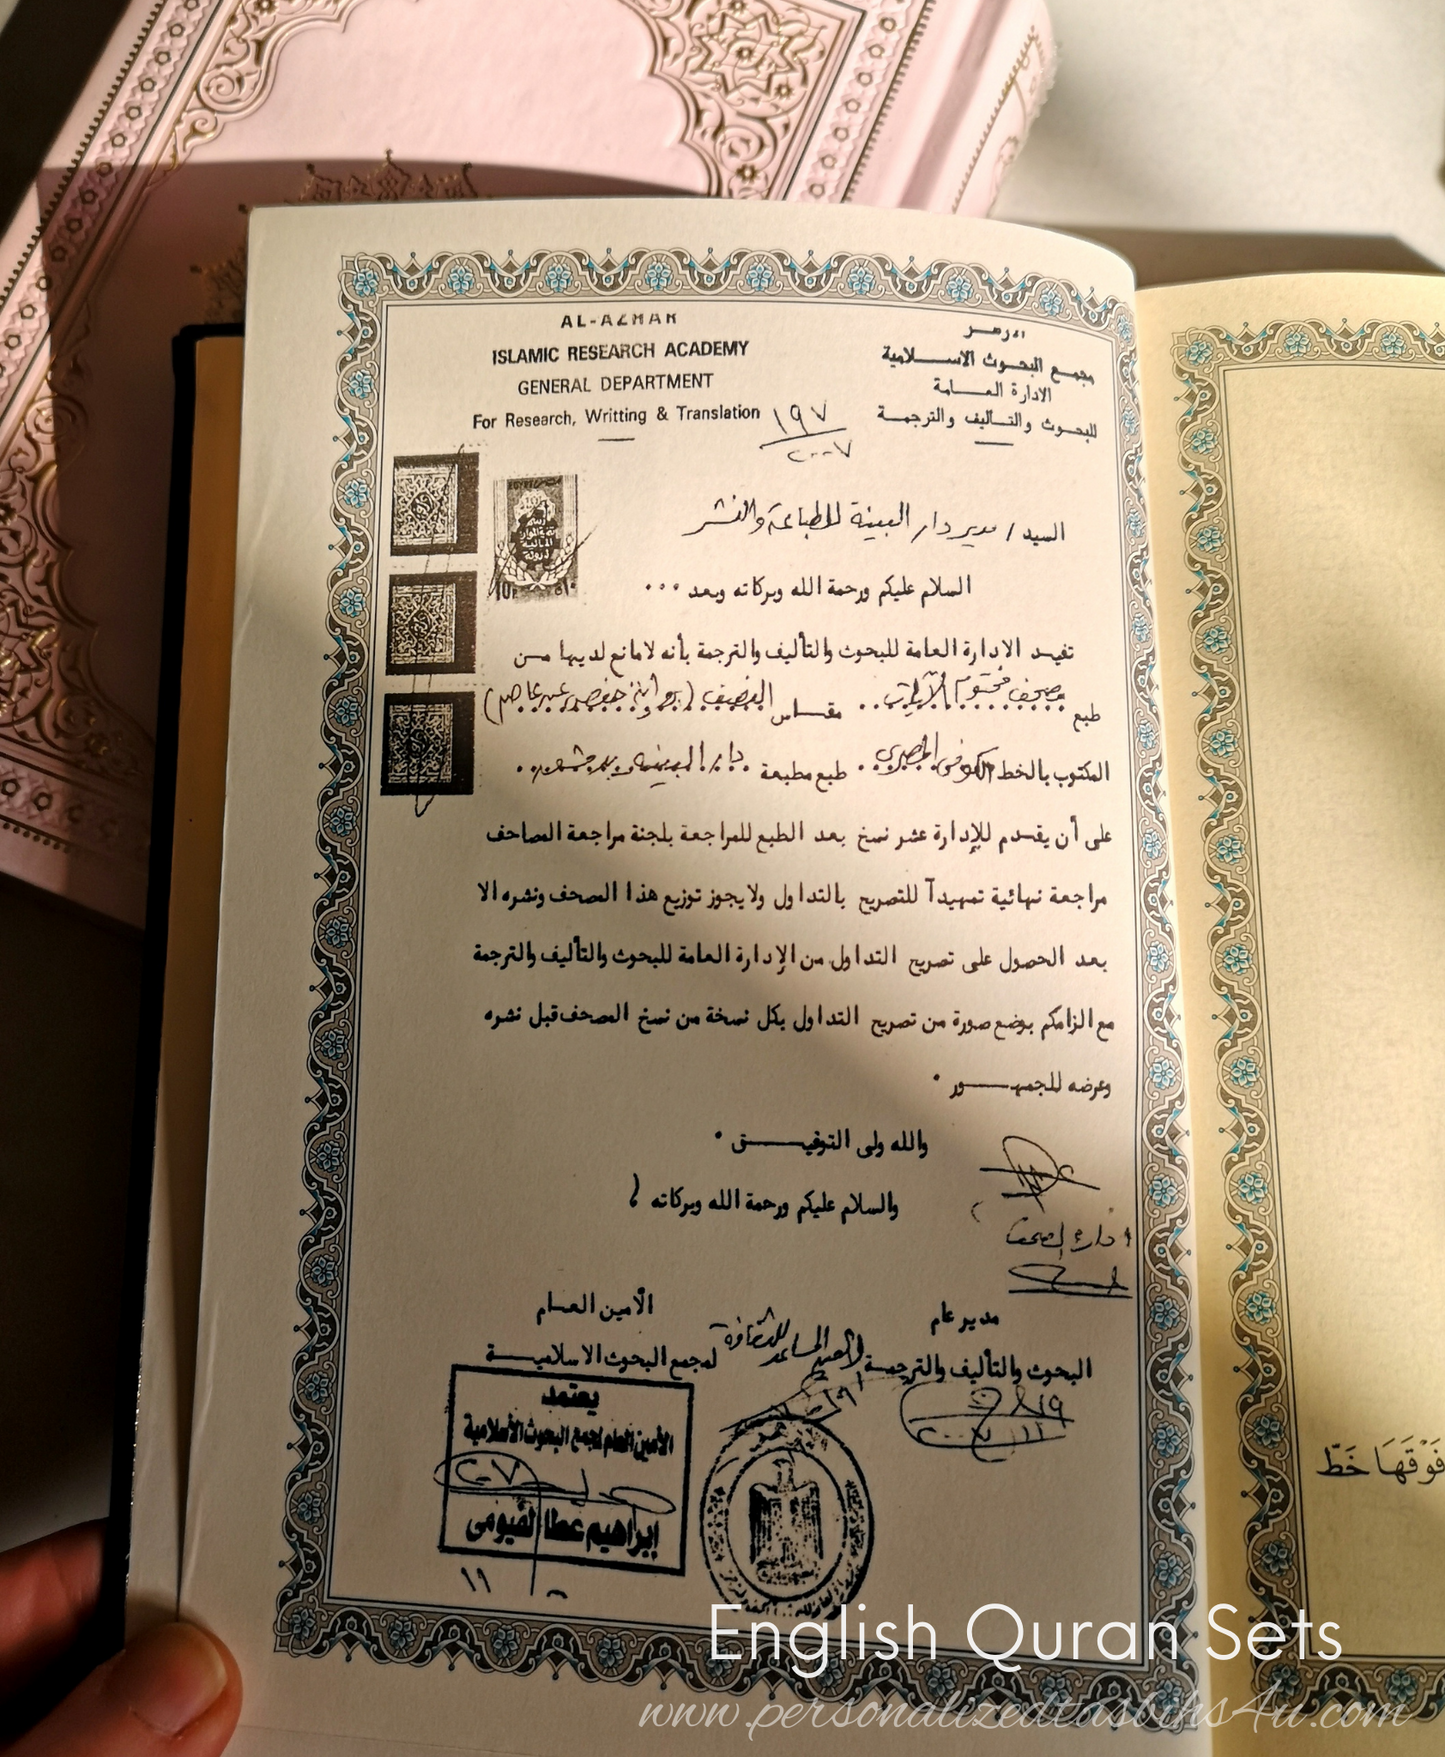 AL-AZHAR
ISLAMIC RESEARCH ACADEMY
GENERAL DEPARTMENT
For Research, Writting & Translation
الازهـــر
مجمـع البحـوث الاســـلامية
الادارة العـــامة
للبحـوث والتــأليف والترجمـة
١٩٧
٢٠٠٧
السيد / مدير دار البينة للطباعة والنشر
السلام عليكم ورحمة الله وبركاته وبعد ٠٠٠
تفيـد الإدارة العامة للبحوث والتأليف والترجمة بأنه لا مانع لديها مـن
طبع مصحف مختوم الآيات مقــاس النصيف (برواية حفص عن عاصم)
المكتوب بالخط الكوفى المصرى ٠ طبع مطبعة ٠ دار البينة
على أن يقـدم للإدارة عشر نسخ بعد الطبع للمراجعة بلجنة مراجعة المصاحف
مراجعة نهائية تمهيدآ للتصريح بالتداول ولا يجوز توزيع هذا المصحف ونشره الا
بعد الحصول على تصريح التداول من الإدارة العامة للبحوث والتأليف والترجمة
مع الزامكم بوضع صورة من تصريح التداول بكل نسخة من نسخ المصحف قبل نشره
وعرضه للجمهـــور ٠
والله ولى التوفيـــق ٠
والسلام عليكم ورحمة الله وبركاته
الأمين العــام
لمجمع البحوث الاسلاميـــة
الأمين المساعد للثقافة
مدير عام
البحوث والتأليف والترجمـة
يعتمد
الأمين العام لمجمع البحوث الأسلامية
إبراهيم عطا الفيومى
فَوْقَهَا خَطّ
English Quran Sets
www.personalizedtasbihs4u.com